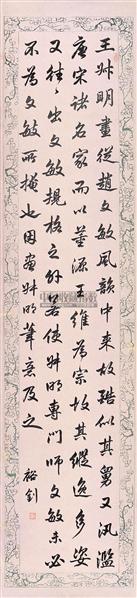 王叔明畫從趙文敏風韻中來故酷似其舅又汎濫
唐宋諸名家而以董源王維為宗故其縱逸多姿
又往往出文敏規格之外若使叔明專門師文敏未必
不為文敏所掩也因畫叔明筆意及之
裕釗